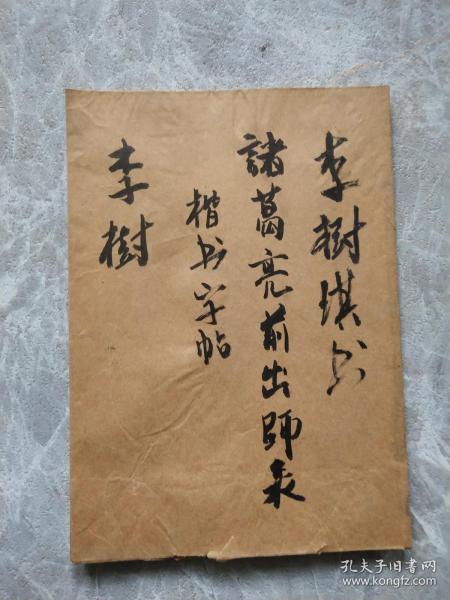 李樹琪书
諸葛亮前出師表
楷书字帖
李樹
孔夫子旧书网
www.kongfz.com